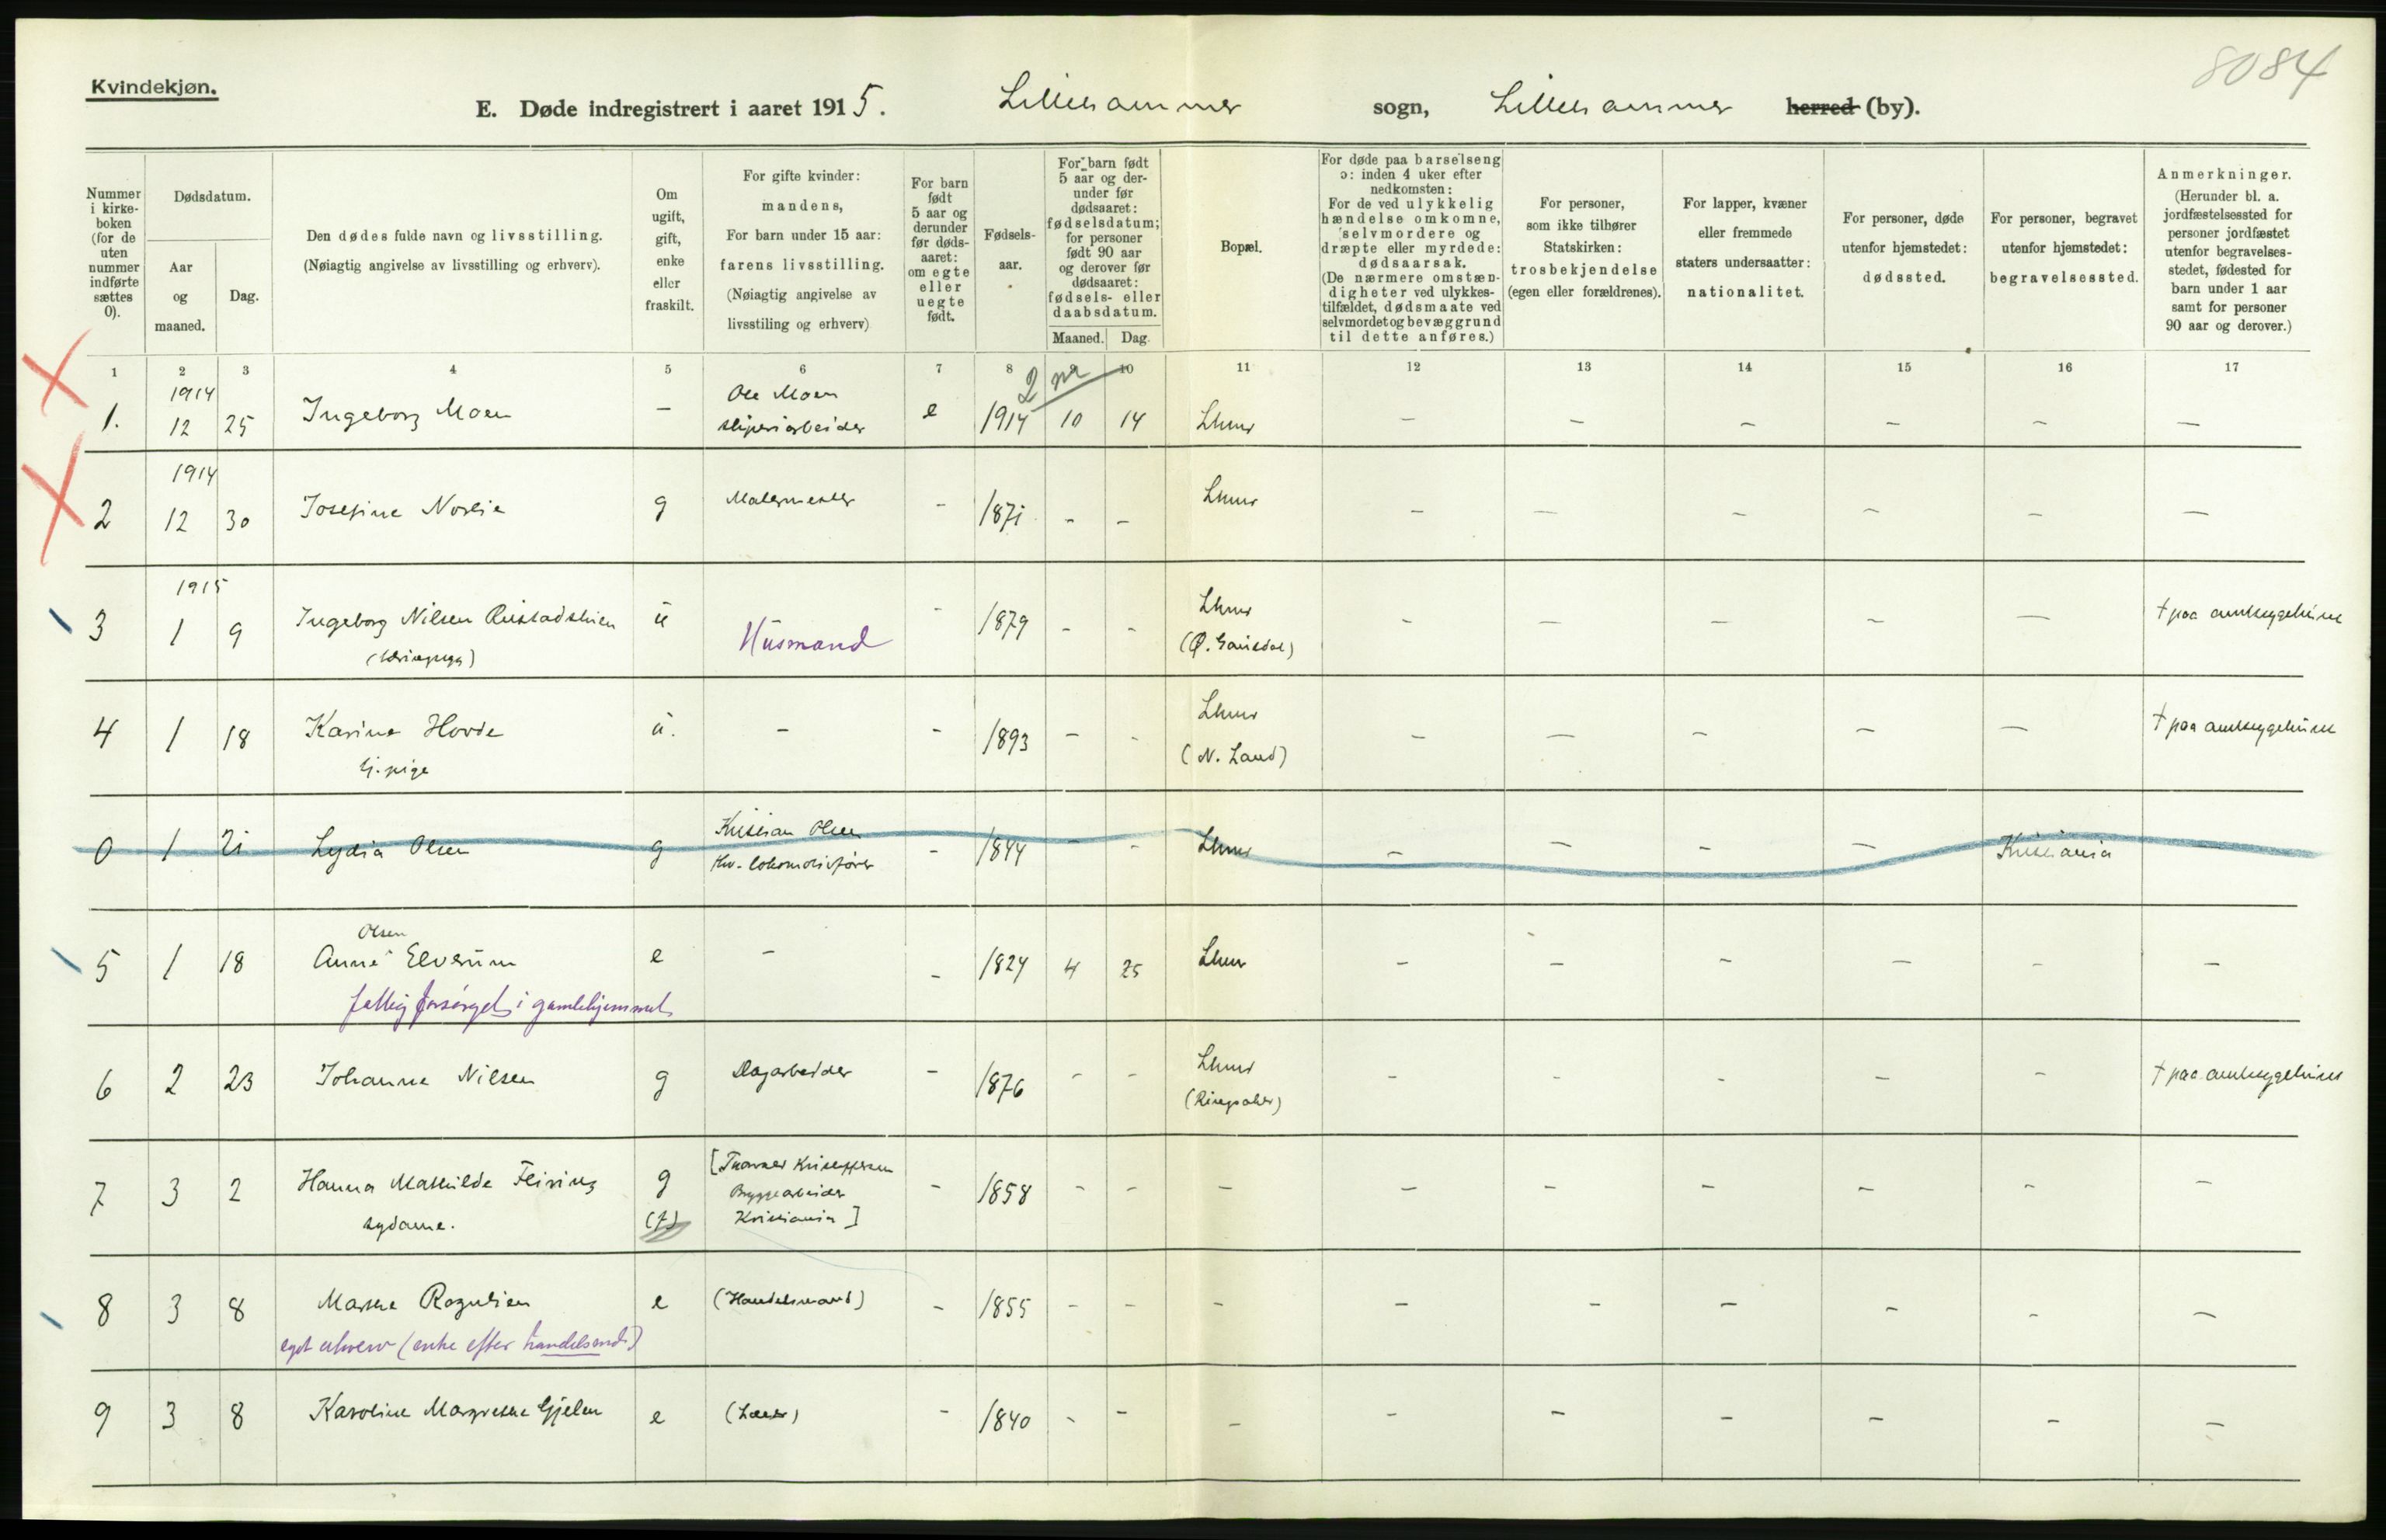 8084
Kvindekjøn.
E. Døde indregistrert i aaret 1915. Lillehammer sogn, Lillehammer herred (by).
Nummer i kirkeboken (for de uten nummer indførte sættes 0).
Dødsdatum.
Aar og maaned.
Dag.
Den dødes fulde navn og livsstilling.
(Nøiagtig angivelse av livsstilling og erhverv).
Om ugift, gift, enke eller fraskilt.
For gifte kvinder: mandens,
For barn under 15 aar: farens livsstilling.
(Nøiagtig angivelse av livsstiling og erhverv)
For barn født 5 aar og derunder før dødsaaret: om egte eller uegte født.
Fødselsaar.
For barn født 5 aar og derunder før dødsaaret: fødselsdatum; for personer født 90 aar og derover før dødsaaret: fødsels- eller daabsdatum.
Maaned. Dag.
Bopæl.
For døde paa barselseng ɔ: inden 4 uker efter nedkomsten:
For de ved ulykkelig hændelse omkomne, selvmordere og dræpte eller myrdede: dødsaarsak.
(De nærmere omstændigheter ved ulykkestilfældet, dødsmaate ved selvmordet og bevæggrund til dette anføres.)
For personer, som ikke tilhører Statskirken: trosbekjendelse (egen eller forældrenes).
For lapper, kvæner eller fremmede staters undersaatter: nationalitet.
For personer, døde utenfor hjemstedet: dødssted.
For personer, begravet utenfor hjemstedet: begravelsessted.
Anmerkninger.
(Herunder bl. a. jordfæstelsessted for personer jordfæstet utenfor begravelsesstedet, fødested for barn under 1 aar samt for personer 90 aar og derover.)
1 2 3 4 5 6 7 8 9 10 11 12 13 14 15 16 17
2 m
1914
1. 12 25 Ingeborg Moen – Ole Moen sliperiarbeider e 1914 10 14 Lhmr – – – – – –
1914
2 12 30 Josefine Norlie g Malermester – 1871 – – Lhmr – – – – – –
1915
3 1 9 Ingeborg Nilsen ü Husmand – 1879 – – Lhmr (Ø. Gausdal) – – – – – † paa amtssygehuset
4 1 18 Karine Hovde ü. – – 1893 – – Lhmr (N. Land) – – – – – † paa amtssygehuset
tj. pige
0 1 21 Lydia Olsen g Kristian Olsen lokomotivfører – 1844 – – Lhmr – – – – Kristiania
Olsen
5 1 18 Anne Elverum e – – 1824 4 25 Lhmr – – – – – –
fattig forsørget i gamlehjemmet
6 2 23 Johanne Nilsen g Dagarbeider – 1876 – – Lhmr (Ringsaker) – – – – – † paa amtssygehuset
7 3 2 Hanna Mathilde Feiring g [Thorvald Kristoffersen – 1858 – – – – – – – – –
sydame. (f) Byggearbeider
Kristiania]
8 3 8 Marthe Rognlien e (Handelsmand) – 1855 – – – – – – – – –
eget erhverv (enke efter handelsmd.)
9 3 8 Karoline Margrethe Gjelen e – 1840 – – – – – – – – –